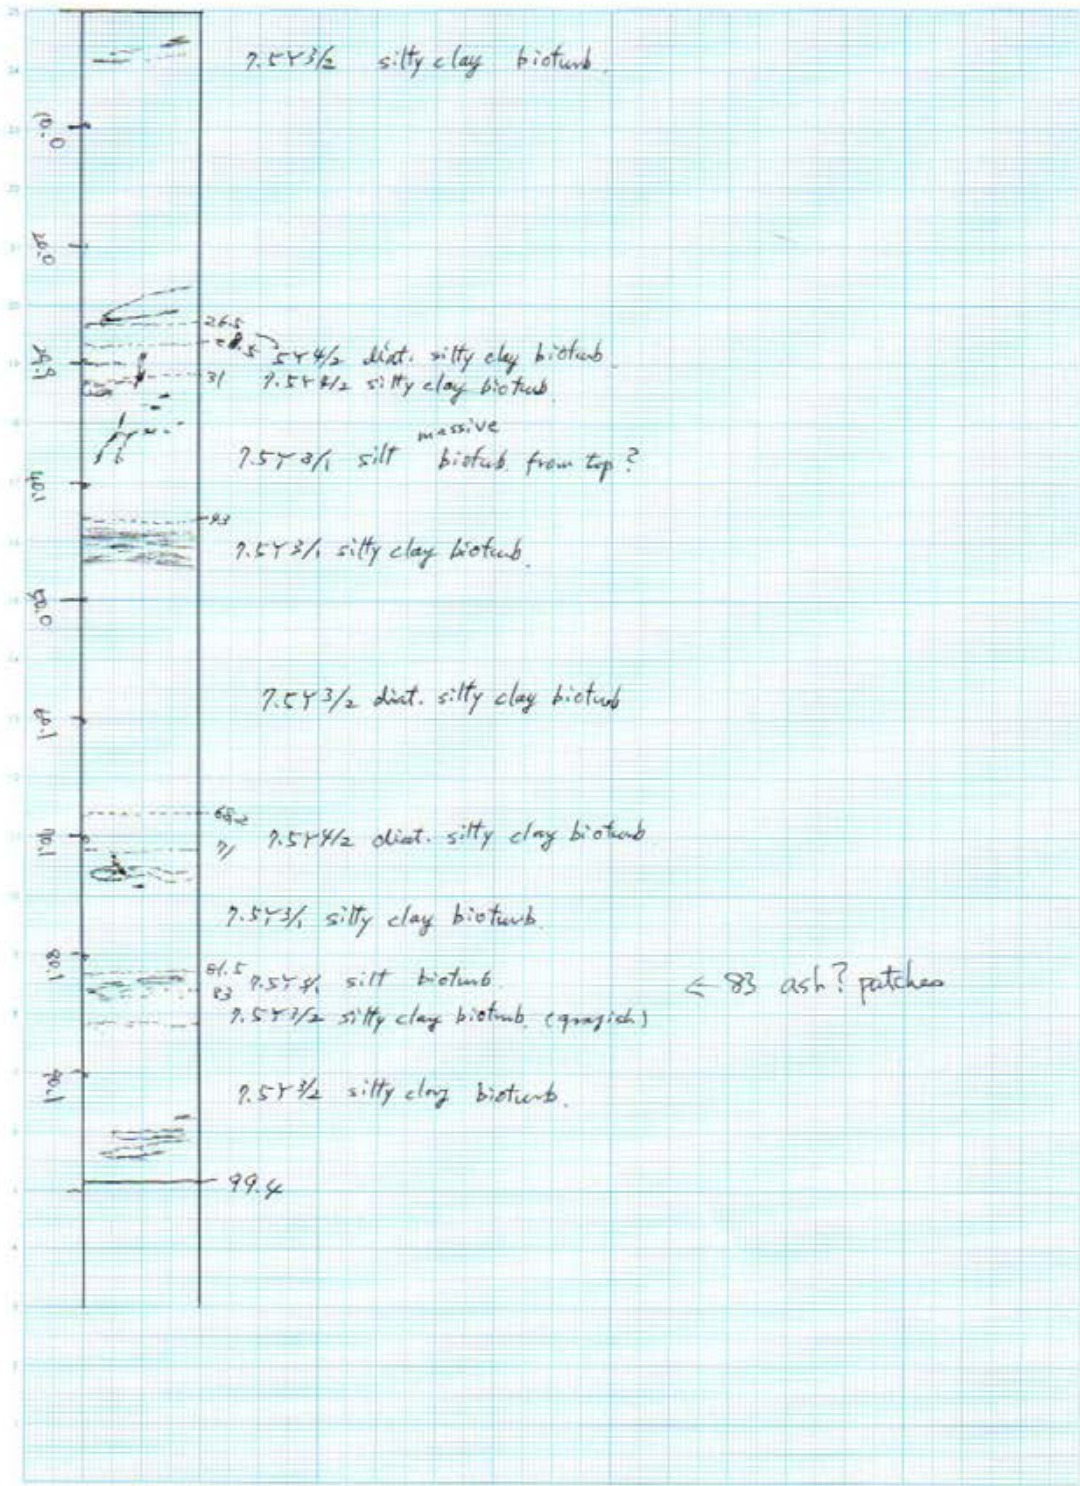 7.5Y3/2 silty clay bioturb.
10.0
20.0
26.5
28.5
5Y4/2 diat. silty clay bioturb.
29.9
31 7.5Y4/2 silty clay bioturb.
massive
7.5Y3/1 silt bioturb. from top?
40.1
43
7.5Y3/1 silty clay bioturb.
50.0
7.5Y3/2 diat. silty clay bioturb
60.1
68.2
70.1
71 7.5Y4/2 diat. silty clay bioturb
7.5Y3/1 silty clay bioturb.
80.1
81.5 silt bioturb.
← 83 ash? patches
83
7.5Y3/2 silty clay bioturb.
90.1
7.5Y3/2 silty clay bioturb.
99.4